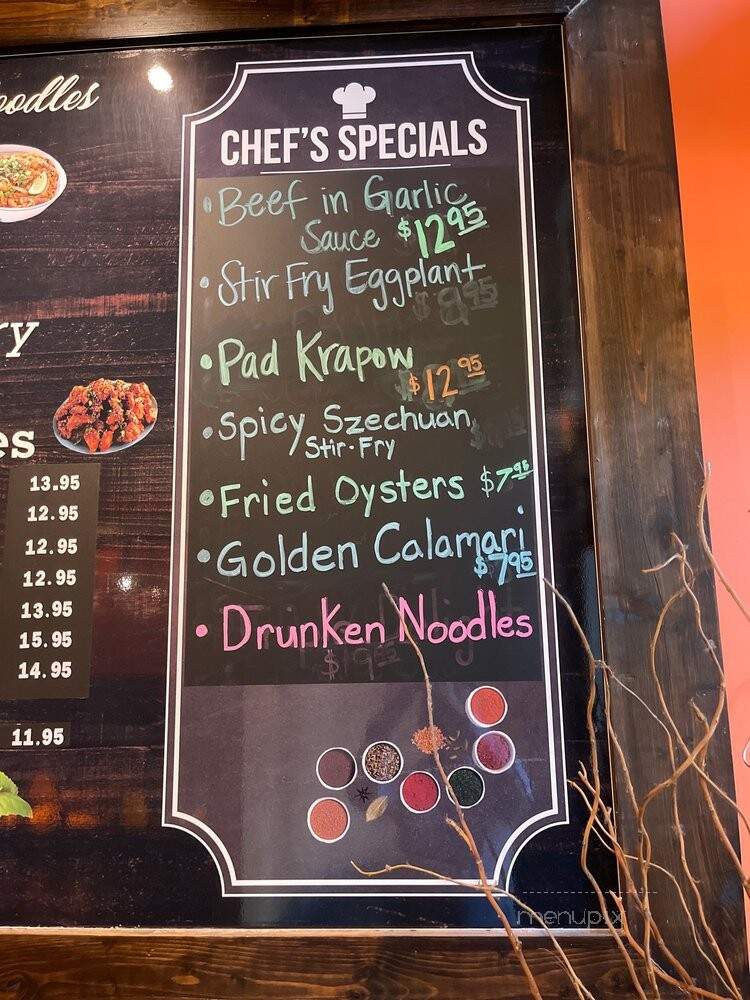 oodles
CHEF'S SPECIALS
• Beef in Garlic
Sauce $12.95
• Stir Fry Eggplant
• Pad Krapow
$12.95
• Spicy Szechuan
Stir-Fry
• Fried Oysters $7.95
• Golden Calamari
$7.95
• Drunken Noodles
ry
es
13.95
12.95
12.95
12.95
13.95
15.95
14.95
11.95
menupix